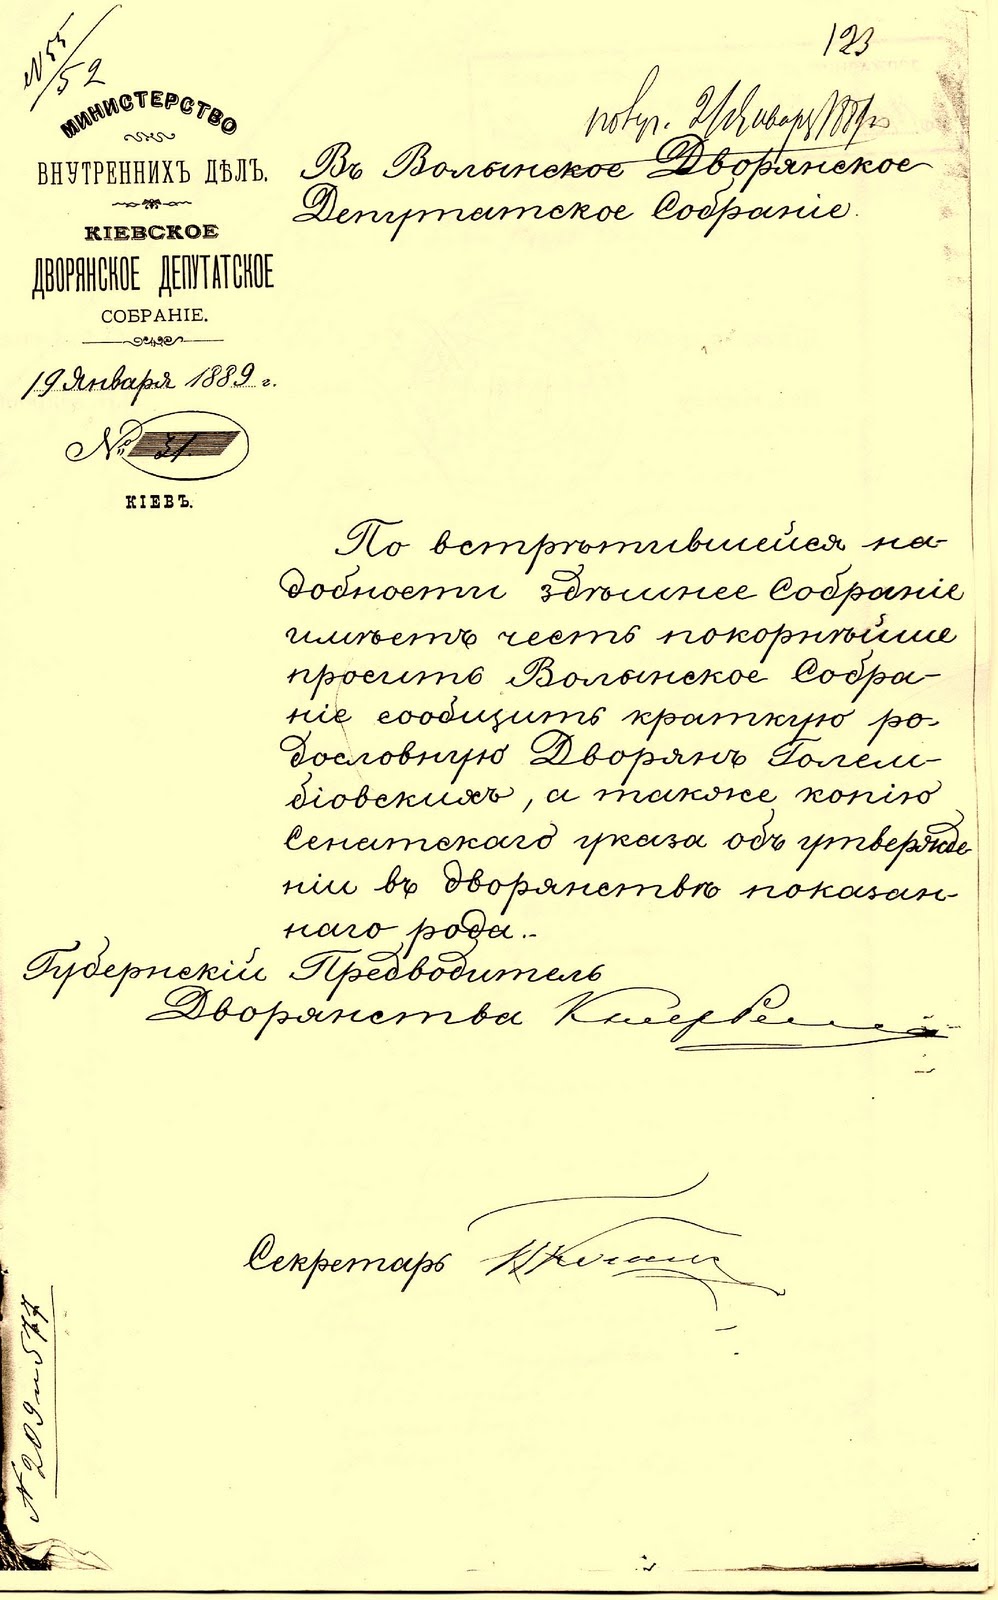 № 55/52
123
МИНИСТЕРСТВО
ВНУТРЕННИХЪ ДѢЛЪ.
КІЕВСКОЕ
ДВОРЯНСКОЕ ДЕПУТАТСКОЕ
СОБРАНІЕ.
19 Января 1889 г.
№ 31.
КІЕВЪ.
Января
Въ Волынское Дворянское
Депутатское Собраніе.
По встрѣтившейся на-
добности здѣшнее Собраніе
имѣетъ честь покорнѣйше
просить Волынское Собра-
ніе сообщить краткую ро-
дословную Дворянъ Голем-
біовскихъ, а также копію
Сенатскаго указа объ утвержде
ніи въ дворянствѣ показан-
наго рода.
Губернскій Предводитель
Дворянства
Секретарь
№ 209 и 577